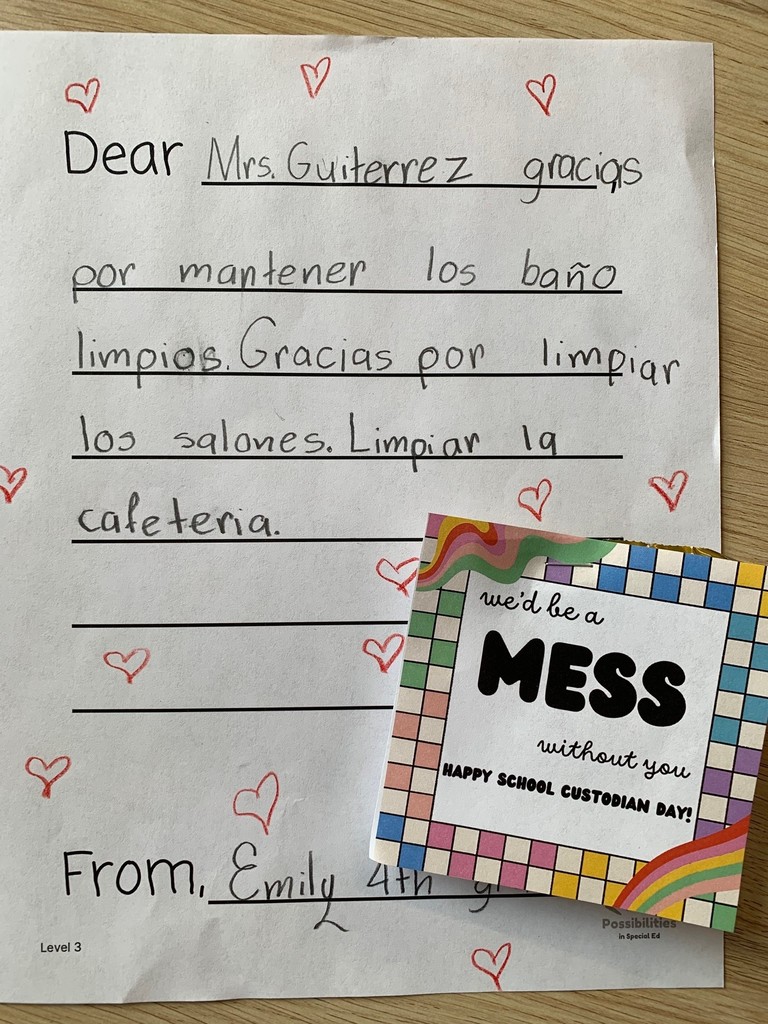 Dear Mrs. Guiterrez gracias
por mantener los baño
limpios. Gracias por limpiar
los salones. Limpiar la
cafeteria.
we'd be a
MESS
without you
HAPPY SCHOOL CUSTODIAN DAY!
From, Emily 4th
Possibilities
in Special Ed
Level 3